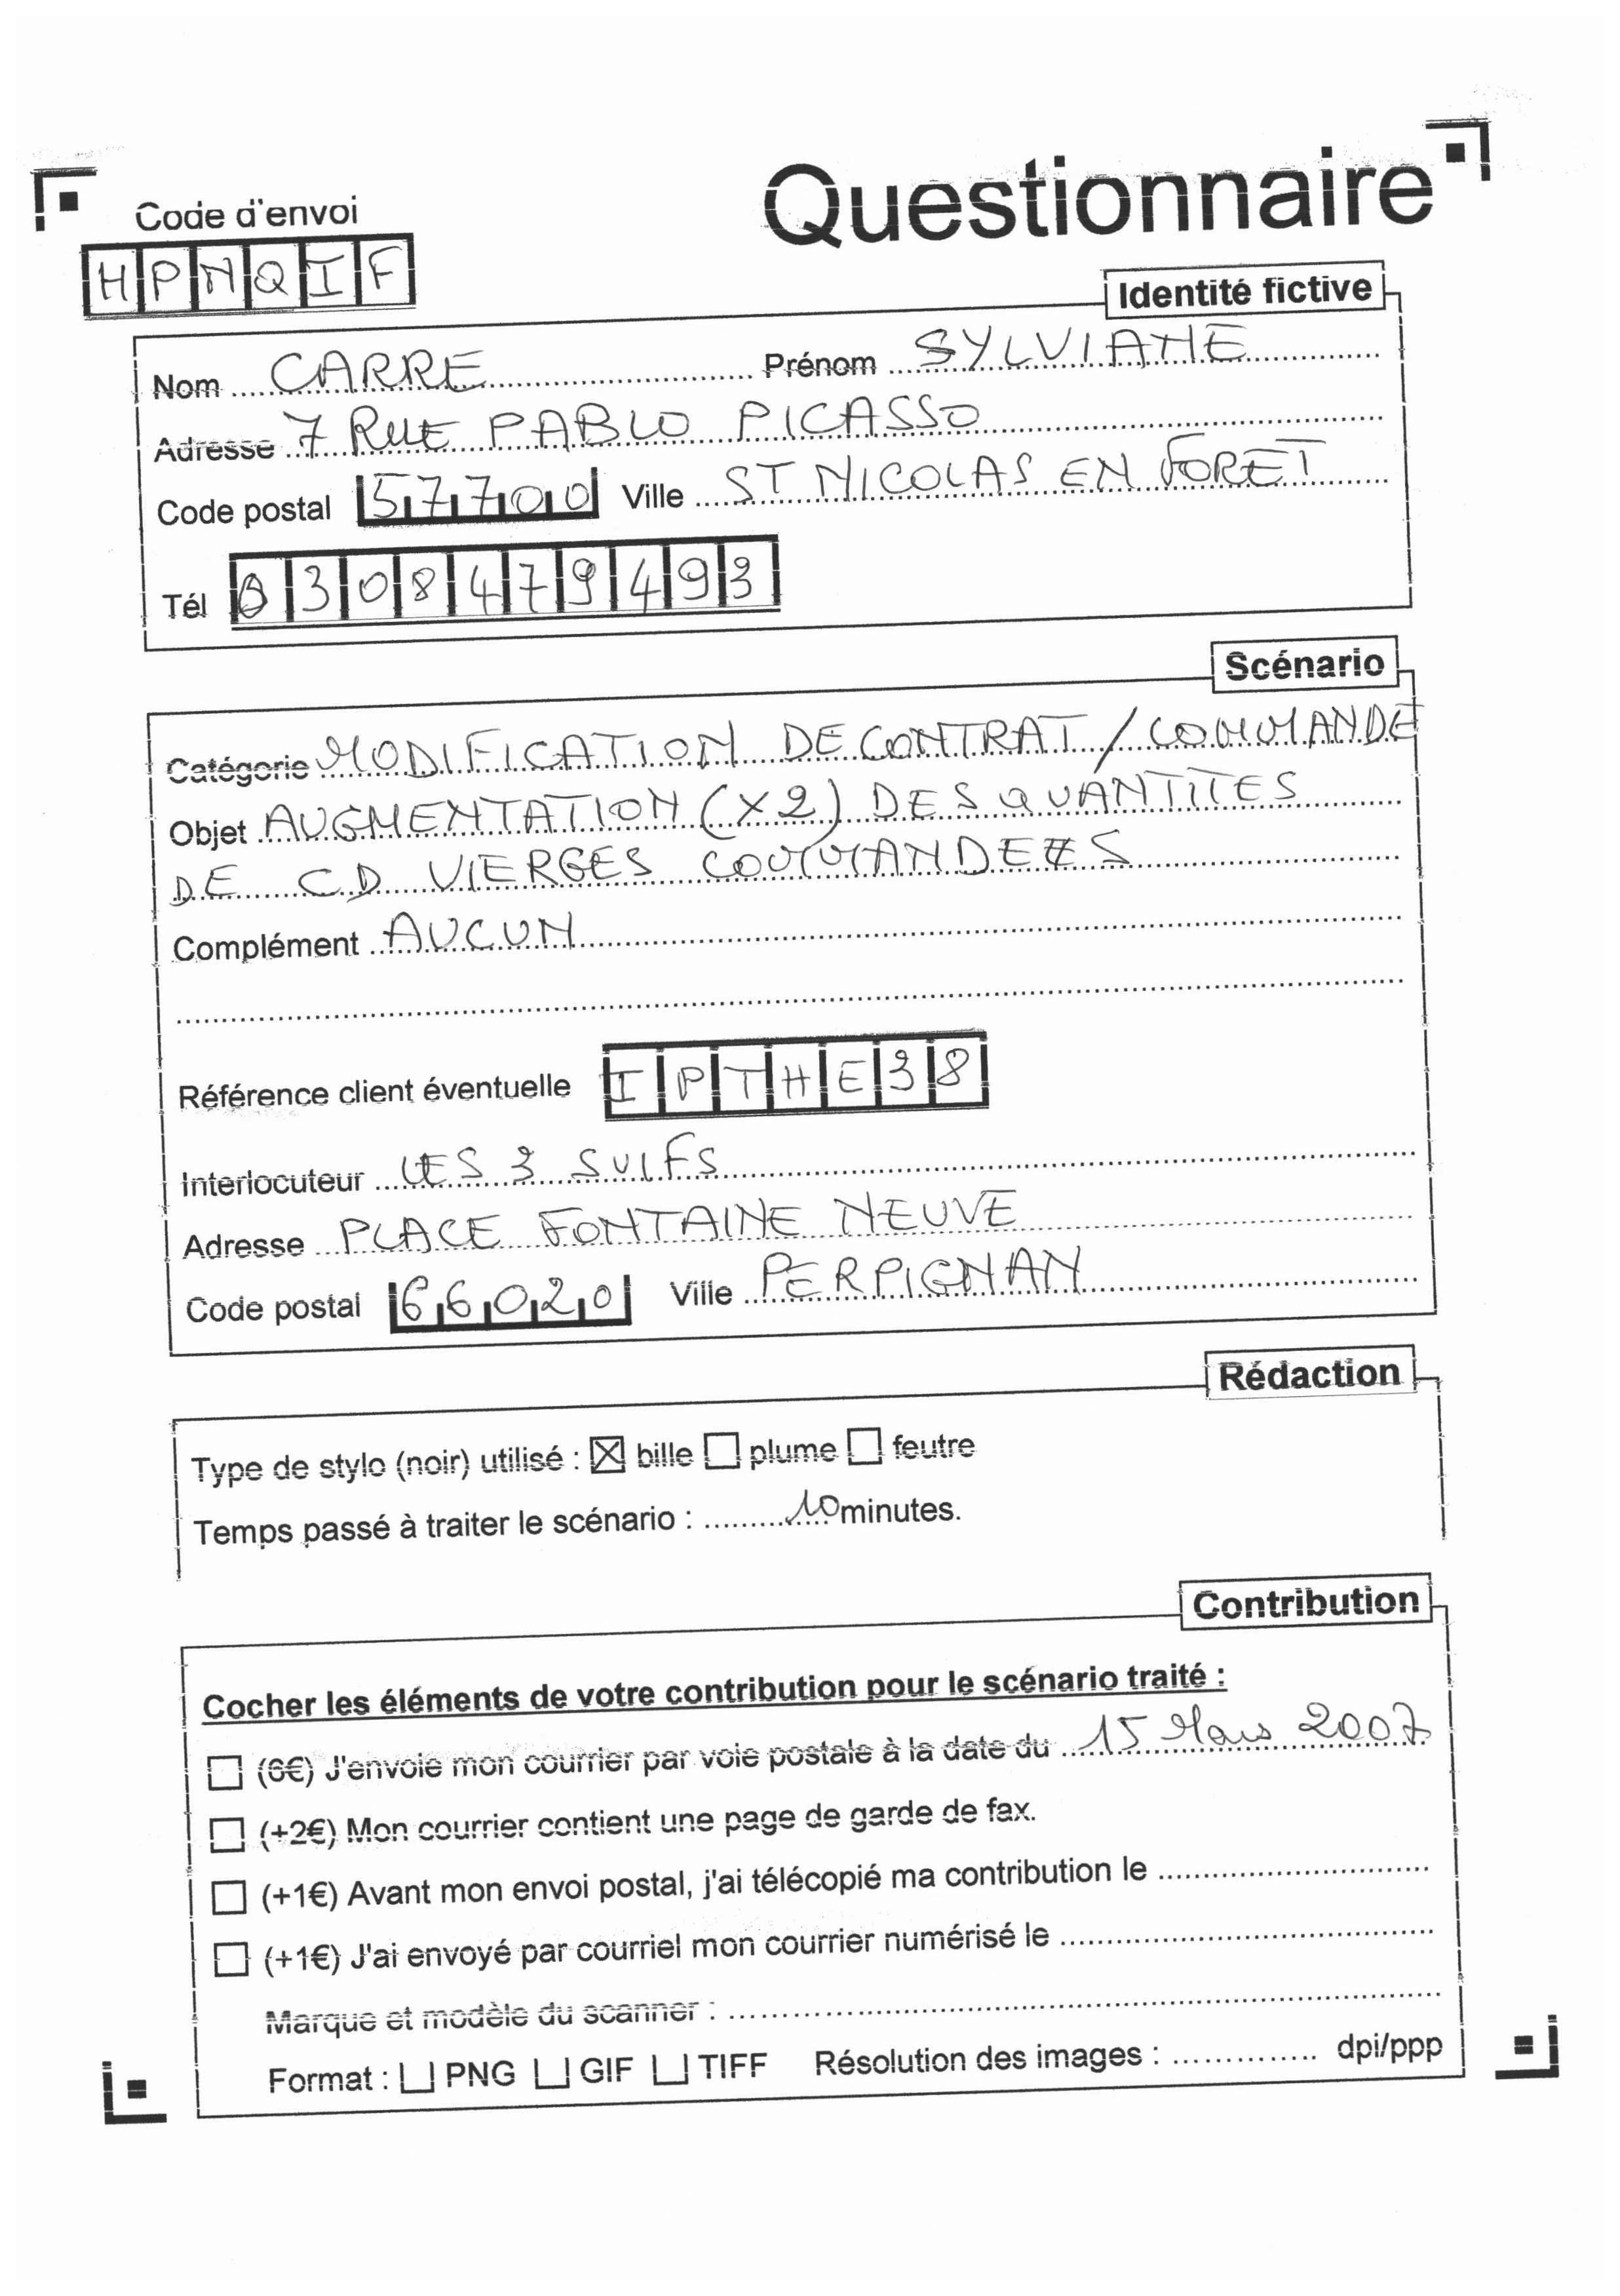 Questionnaire
Code d'envoi
HPNQIF
Identité fictive
Nom CARRE Prénom SYLVIANE
Adresse 7 RUE PABLO PICASSO
Code postal 57700 Ville ST NICOLAS EN FORET
Tél 0308479493
Scénario
Catégorie MODIFICATION DE CONTRAT / COMMANDE
Objet AUGMENTATION (X2) DES QUANTITES
DE CD VIERGES COMMANDEES
Complément AUCUN
Référence client éventuelle IPTHE38
Interlocuteur LES 3 SUIFS
Adresse PLACE FONTAINE NEUVE
Code postal 66020 Ville PERPIGNAN
Rédaction
Type de stylo (noir) utilisé : ☒ bille ☐ plume ☐ feutre
Temps passé à traiter le scénario : 10 minutes.
Contribution
Cocher les éléments de votre contribution pour le scénario traité :
☐ (6€) J'envoie mon courrier par voie postale à la date du 15 Mars 2007
☐ (+2€) Mon courrier contient une page de garde de fax.
☐ (+1€) Avant mon envoi postal, j'ai télécopié ma contribution le
☐ (+1€) J'ai envoyé par courriel mon courrier numérisé le
Marque et modèle du scanner :
Format : ☐ PNG ☐ GIF ☐ TIFF Résolution des images : dpi/ppp